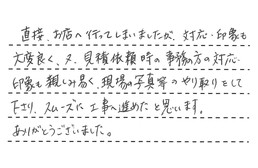 直接、お店へ行ってしまいましたが、対応・印象も
大変良く、又、見積依頼時の事務の方の対応・
印象も親しみ易く、現場の写真等のやり取りをして
下さり、スムーズに工事へ進めたと思います。
ありがとうございました。